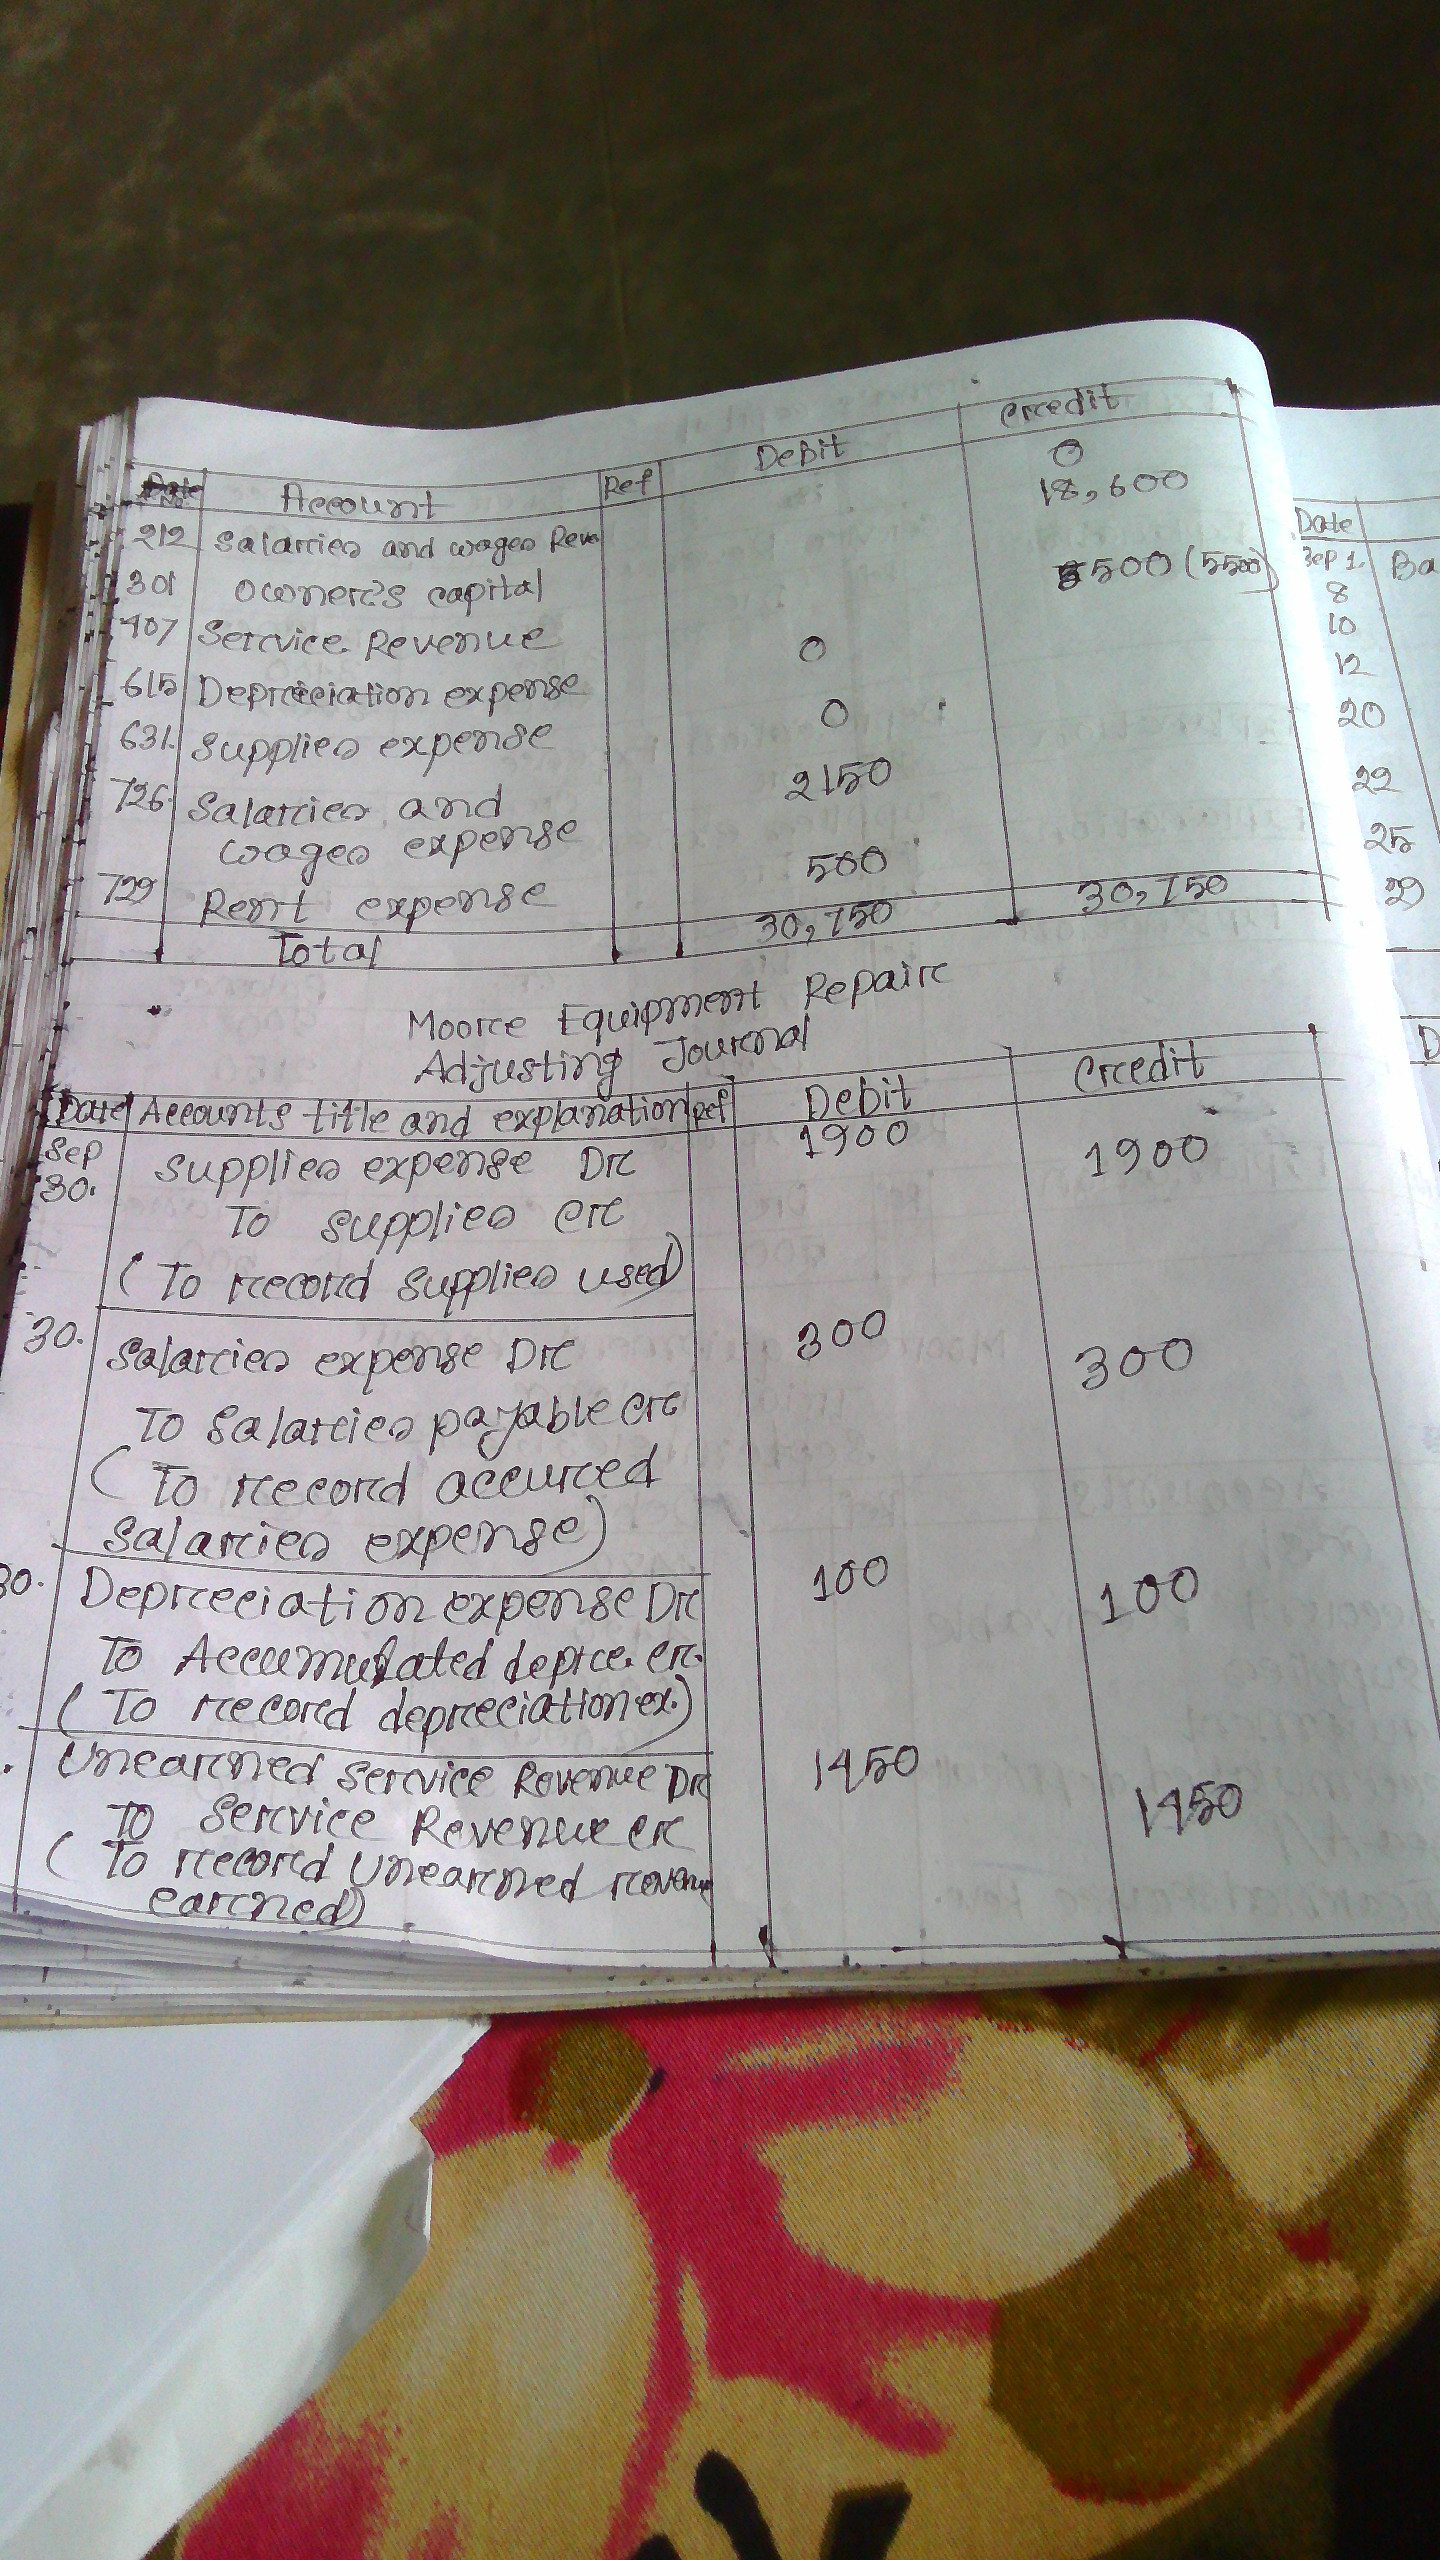 No. Account Ref Debit Credit
212 Salaries and wages Reve 0
301 Owner's capital 18,600
407 Service Revenue 5500 (5500)
615 Depreciation expense 0
631. Supplies expense 0
726. Salaries and
wages expense 2150
729 Rent expense 500
Total 30,750 30,750
Moore Equipment Repair
Adjusting Journal
Date Accounts title and explanation Ref Debit Credit
Sep
30. Supplies expense Dr 1900
To supplies cr 1900
(To record supplies used)
30. Salaries expense Dr 300
To Salaries payable cr 300
(To record accured
salaries expense)
30. Depreciation expense Dr 100
To Accumulated depre. cr. 100
(To record depreciation ex.)
Unearned service Revenue Dr 1450
To Service Revenue cr 1450
(To record unearned revenue
earned)
Date
Sep 1. Ba
8
10
12
20
22
25
29
D